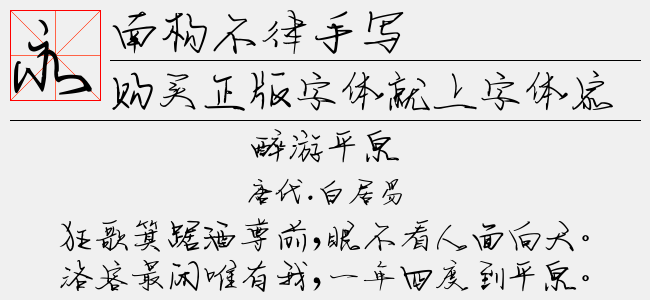 永
南构不律手写
购买正版字体就上字体家
醉游平泉
唐代.白居易
狂歌箕踞酒尊前,眼不看人面向天。
洛客最闲唯有我,一年四度到平泉。